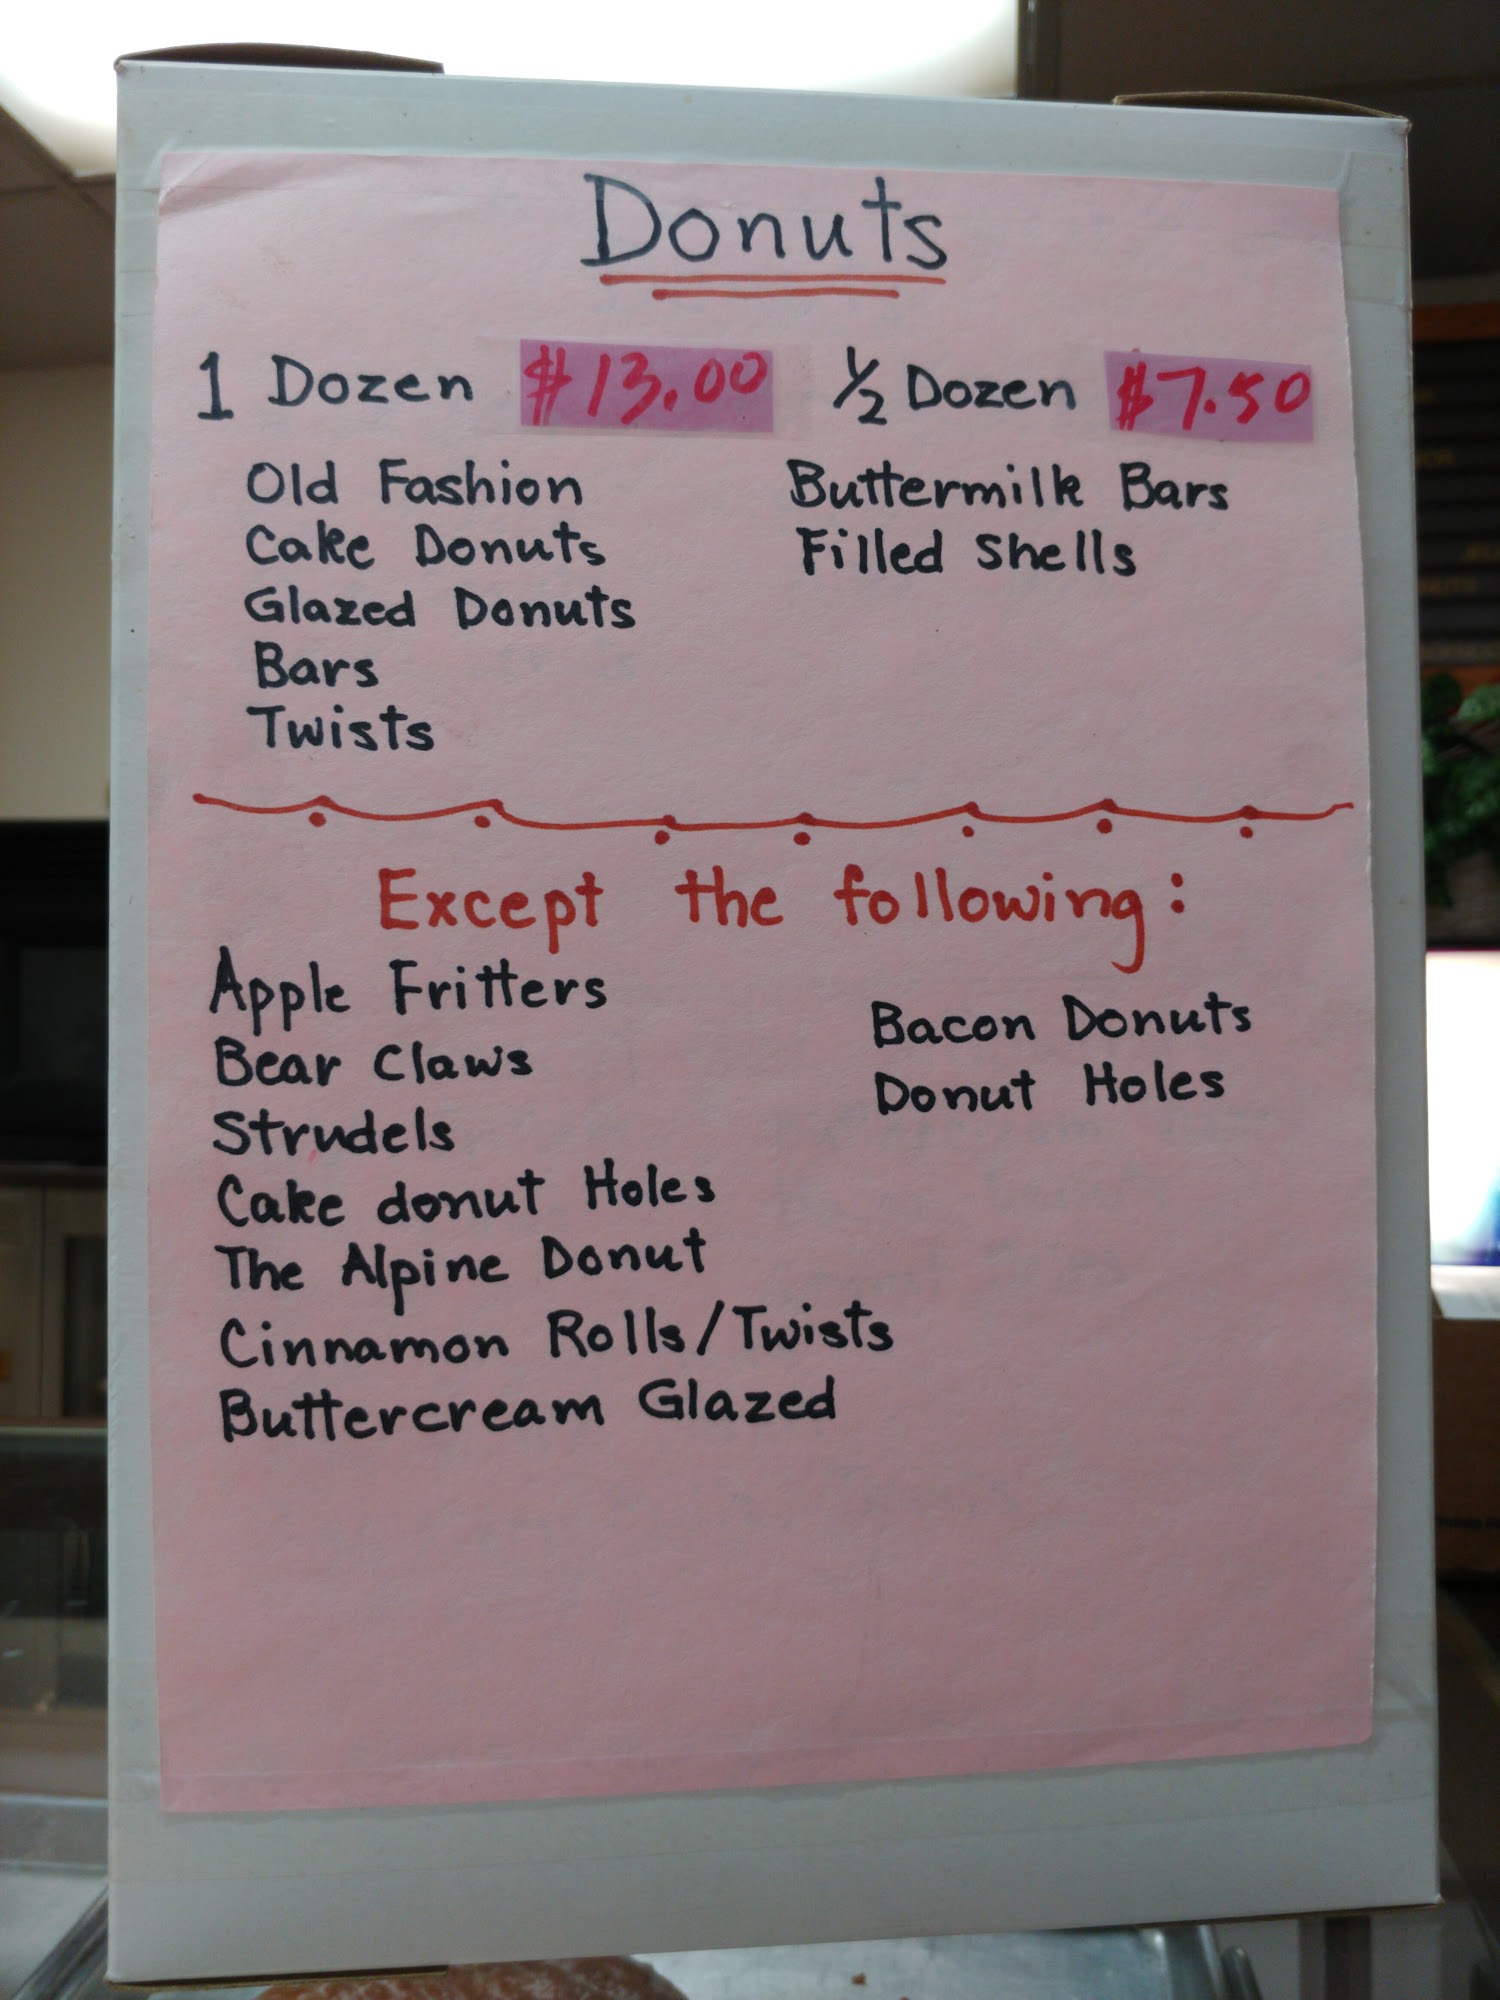 Donuts
1 Dozen $13.00 ½ Dozen $7.50
Old Fashion
Cake Donuts
Glazed Donuts
Bars
Twists
Buttermilk Bars
Filled Shells
Except the following:
Apple Fritters
Bear Claws
Strudels
Cake donut Holes
The Alpine Donut
Cinnamon Rolls/Twists
Buttercream Glazed
Bacon Donuts
Donut Holes